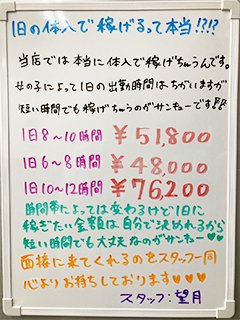 1日の体入で稼げるって本当!!?!
当店では本当に体入で稼げちゃうんです。
女の子によって1日の出勤時間はちがいますが
短い時間でも稼げちゃうのがサンキューです!!
1日8〜10時間 ¥51,800
1日6〜8時間 ¥48,000
1日10〜12時間 ¥76,200
時間帯によっては変わるけど1日に
稼ぎたい金額は自分で決めれるから
短い時間でも大丈夫なのがサンキュー♥♥
面接に来てくれるのをスタッフ一同
心よりお待ちしております♥♥♥
スタッフ:望月